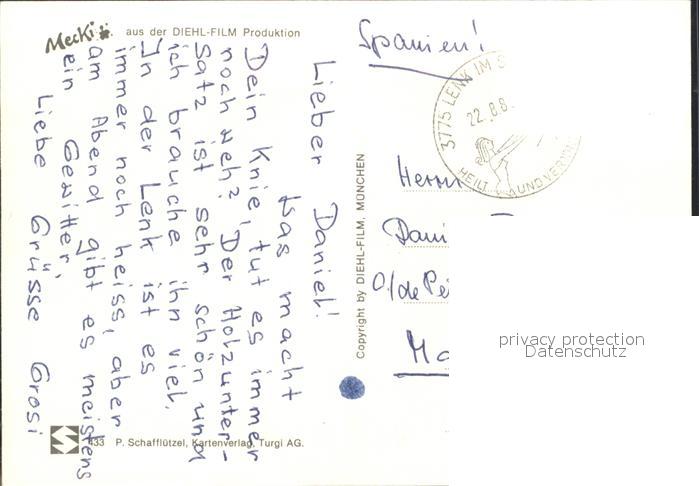 Mecki aus der DIEHL-FILM Produktion
Lieber Daniel!
Was macht
Dein Knie, tut es immer
noch weh? Der Holzunter-
Satz ist sehr schön und
ich brauche ihn viel.
In der Lenk ist es
immer noch heiss, aber
am Abend gibt es meistens
ein Gewitter.
Liebe Grüsse Grosi
433 P. Schafflützel, Kartenverlag, Turgi AG.
Copyright by DIEHL-FILM, MÜNCHEN
Spanien!
3775 LENK IM S
22.8.8
HEILT UND VERJÜ
Herrn
Dani
O./de Pé
Ma
privacy protection
Datenschutz